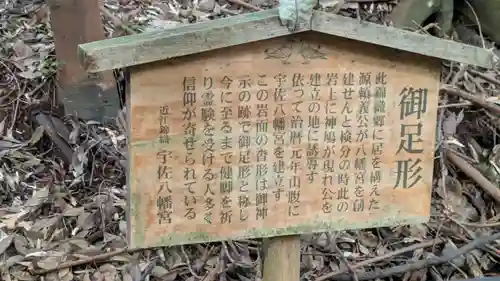 御足形
此霸織郷に居を構えた
源頼義公が八幡宮を創
建せんと検分の時此の
岩上に神鳩が現れ公を
建立の地に誘導す
依って治暦元年山腹に
宇佐八幡宮を建立す
この岩面の沓形は御神
示の跡で御足形と称し
今に至るまで健脚を祈
り霊験を受ける人多く
信仰が寄せられている
近江錦織 宇佐八幡宮